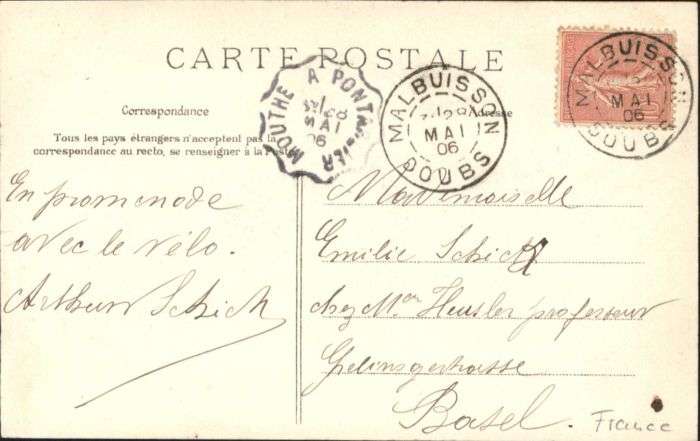 CARTE POSTALE
MOUTHE A PONTARLIER
28
MAI
06
MALBUISSON
28
MAI
06
DOUBS
MALBUISSON
MAI
06
DOUBS
Correspondance
Adresse
Tous les pays étrangers n'acceptent pas la
correspondance au recto, se renseigner à la Poste
En promenade
avec le vélo.
Arthur Schick
Mademoiselle
Emilie Schick
chez Mer Heusler professeur
Basel.
France